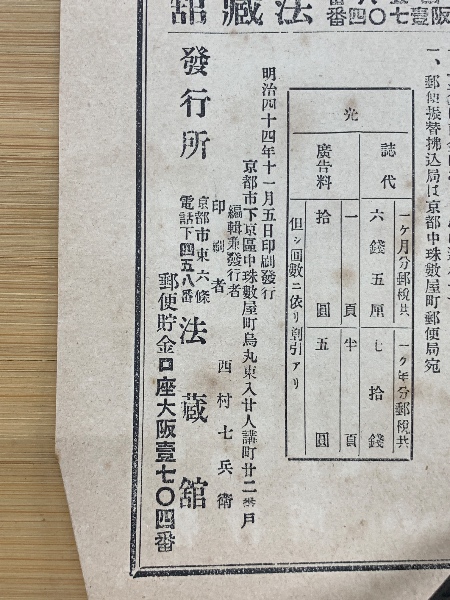 一、郵便振替拂込局は京都中珠數屋町郵便局宛
法藏館
誌代
一ヶ月分郵税共
六錢五厘
一ヶ年分郵税共
七拾錢
廣告料
一頁
拾圓
半頁
五圓
但シ回數ニ依リ割引アリ
明治四十四年十一月五日印刷發行
京都市下京區中珠數屋町烏丸東入廿人講町廿二番戶
編輯兼發行者
印刷者
西村七兵衞
發行所
京都市東六條
電話下四五八番
法藏館
郵便貯金口座大阪壹七〇四番